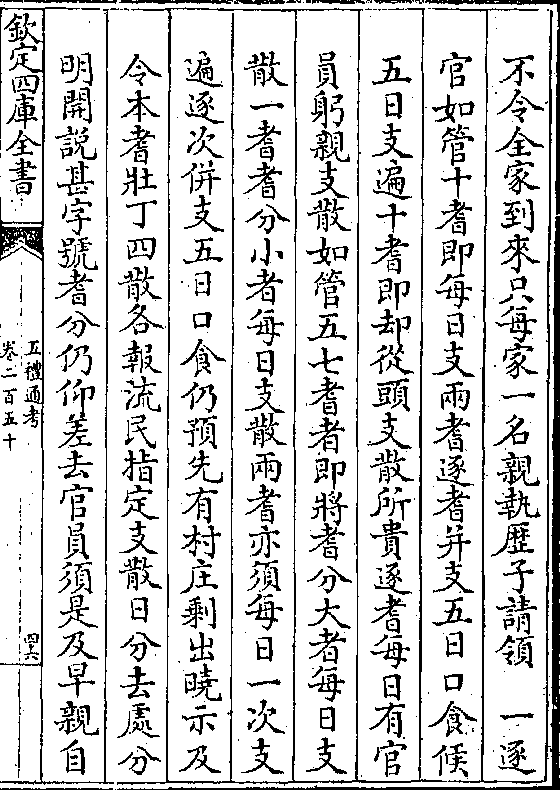 不令全家到來只每家一名親執歴子請領　一逐
官如管十耆即每日支兩耆逐耆并支五日口食候
五日支遍十耆即却從頭支散所貴逐耆每日有官
員躬親支散如管五七耆者即將耆分大者每日支
散一耆耆分小者每日支散兩耆亦須每日一次支
遍逐次併支五日口食仍預先有村庄剩出曉示及
令本耆壯丁四散各報流民指定支散日分去處分
明開說甚字號耆分仍仰差去官員須是及早親自
欽定四庫全書
五禮通考
卷二百五十
四六